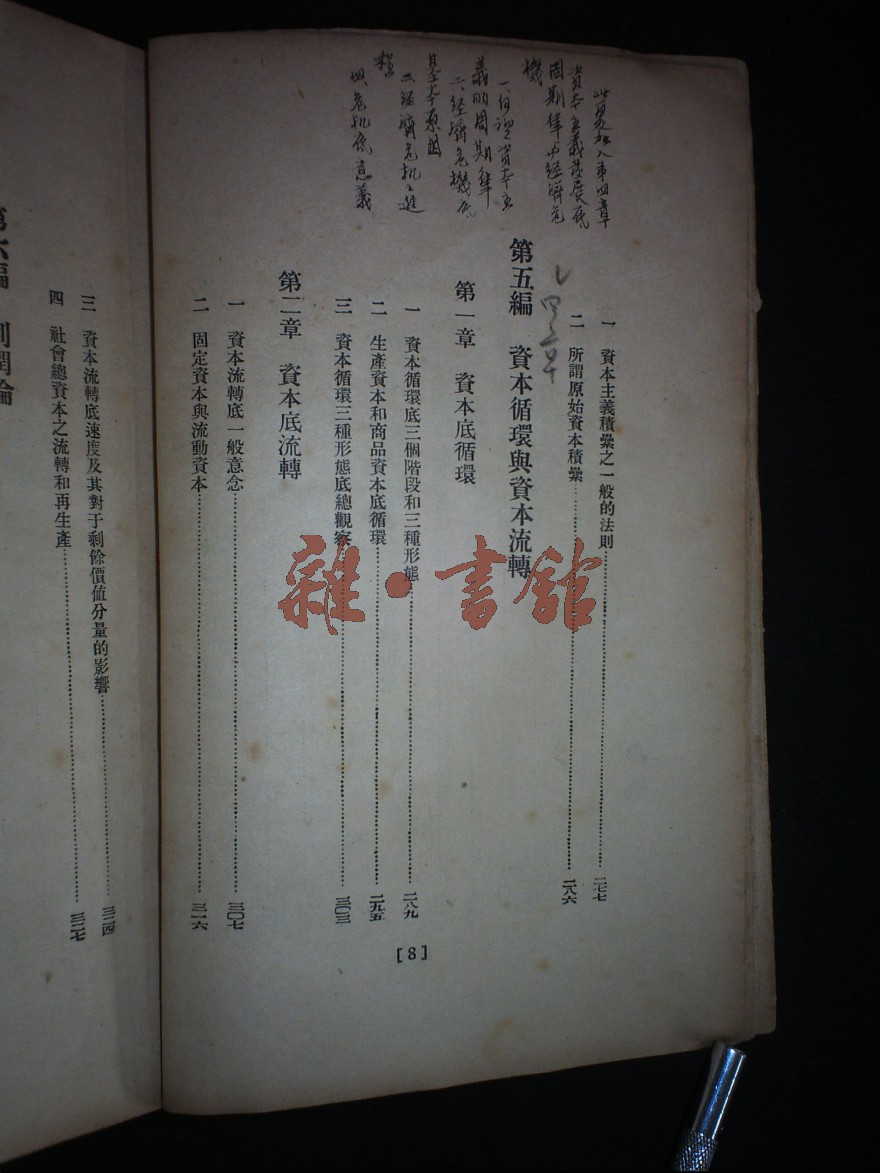 此處加入第四章
資本主義發展底
周期律与經濟危
機
一、何謂資本主
義的周期律
二、經濟危機底
基本原因
三、經濟危机之進
程
四、危机底意義
一 資本主義積纍之一般的法則 二七七
二 所謂原始資本積纍 二八六
第五編 資本循環與資本流轉
第一章 資本底循環
一 資本循環底三個階段和三種形態 二八九
二 生產資本和商品資本底循環 二九五
三 資本循環三種形態底總觀察 三〇三
第二章 資本底流轉
一 資本流轉底一般意念 三〇七
二 固定資本與流動資本 三一六
[8]
三 資本流轉底速度及其對于剩餘價值分量的影響 三二四
四 社會總資本之流轉和再生產 三二七
第六編 利潤論
雜·書館